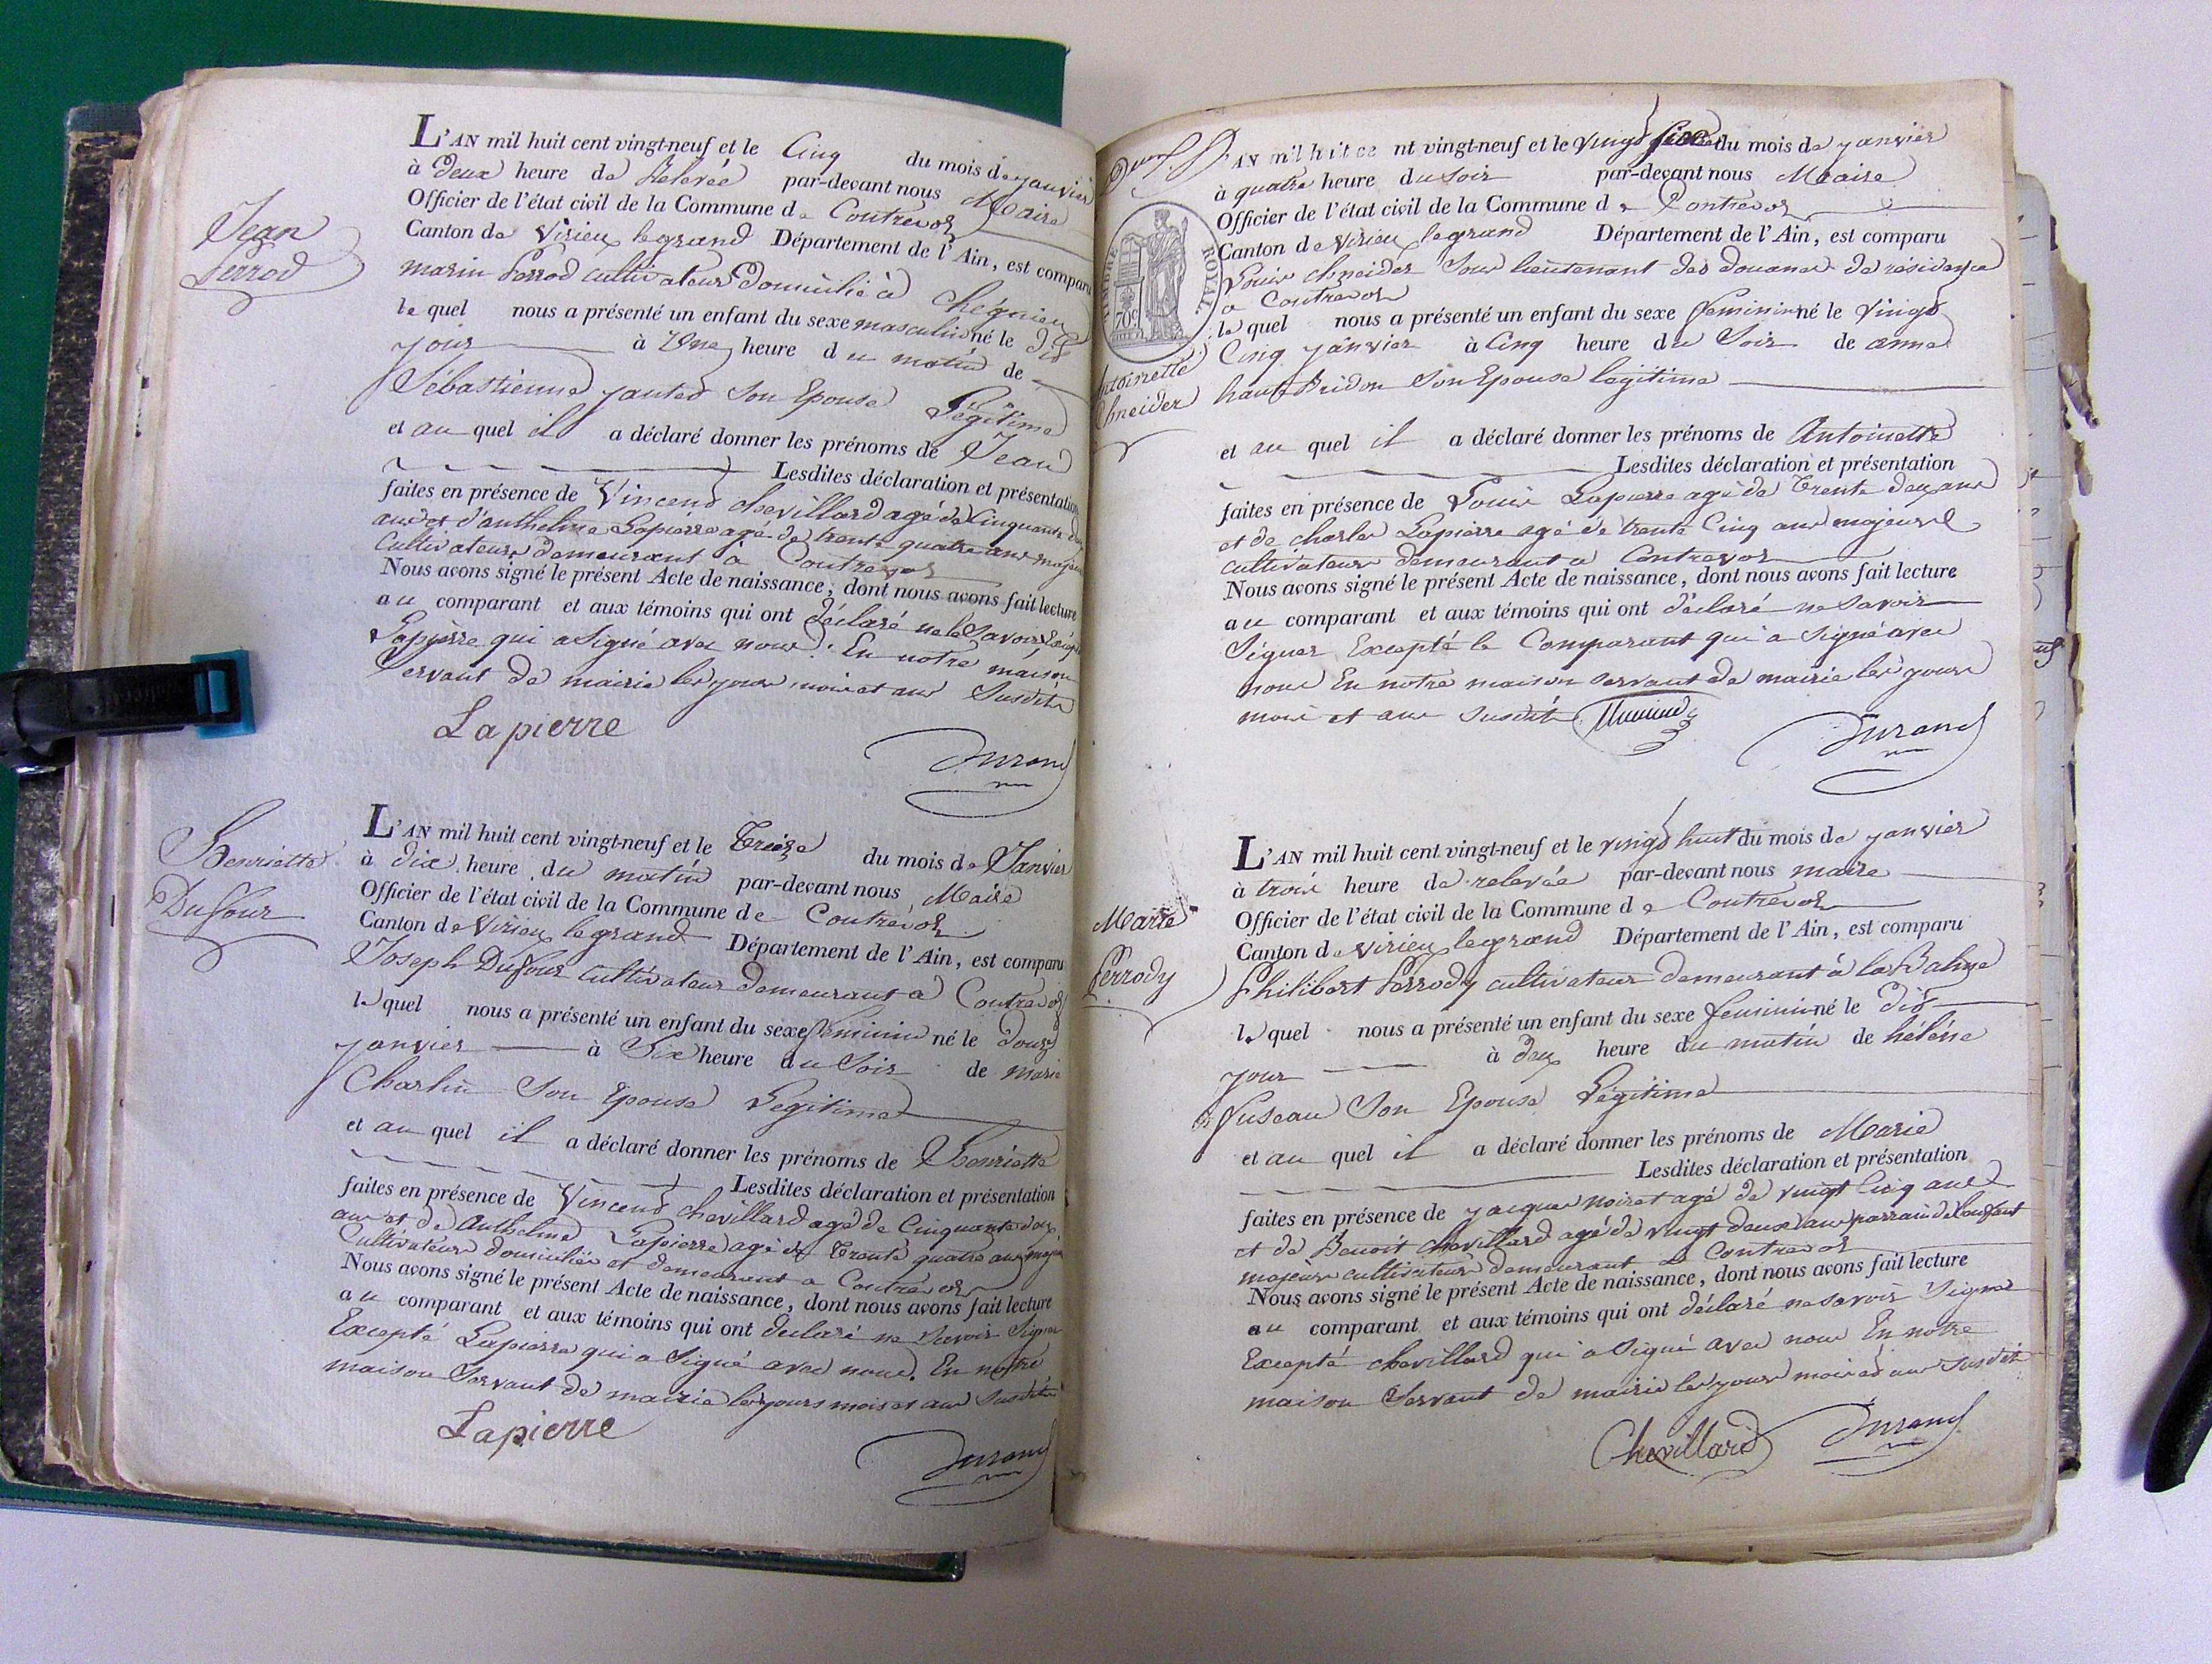 Jean
Perrod
L'AN mil huit cent vingt-neuf et le Cinq du mois de janvier
à Deux heure de Relevée par-devant nous Maire
Officier de l'état civil de la Commune de Contrevoz
Canton de Virieu legrand Département de l'Ain, est comparu
marin Perrod cultivateur Domicilié à Chégnieu
lequel nous a présenté un enfant du sexe masculin né le dit
jour à Une heure du matin de
Sébastienne jantet Son Epouse Légitime
et au quel il a déclaré donner les prénoms de Jean
Lesdites déclaration et présentation
faites en présence de Vincend chevillard agé de Cinquante deux
ans et d'anthelme Lapierre agé de trente quatre ans majeurs
Cultivateurs demeurant à Contrevoz
Nous avons signé le présent Acte de naissance, dont nous avons fait lecture
au comparant et aux témoins qui ont déclaré ne le Savoir Excepté
Lapierre qui a Signé avec nous. En notre maison
Servant de mairie les jour mois et an Susdits
Lapierre
Durand
Henriette
Dufour
L'AN mil huit cent vingt-neuf et le Treize du mois de Janvier
à dix heure du matin par-devant nous Maire
Officier de l'état civil de la Commune de Contrevoz
Canton de Virieu legrand Département de l'Ain, est comparu
Joseph Dufour Cultivateur Demeurant a Contrevoz
lequel nous a présenté un enfant du sexe feminin né le Douze
janvier à Six heure du Soir de marie
Charlin Son Epouse Legitime
et au quel il a déclaré donner les prénoms de Henriette
Lesdites déclaration et présentation
faites en présence de Vincend chevillard agé de Cinquante deux
ans et de Anthelme Lapierre agé de Trente quatre ans majeurs
Cultivateurs domiciliés et demeurant a Contrevoz
Nous avons signé le présent Acte de naissance, dont nous avons fait lecture
au comparant et aux témoins qui ont declaré ne Savoir Signer
Excepté Lapierre qui a Signé avec nous. En notre
maison Servant de mairie les jours mois et an Susdits
Lapierre
Durand
TIMBRE ROYAL
70c
Antoinette
Chneider
L'AN mil huit cent vingt-neuf et le vingt six du mois de janvier
à quatre heure du Soir par-devant nous Maire
Officier de l'état civil de la Commune de Contrevoz
Canton de Virieu legrand Département de l'Ain, est comparu
Louis chneider Sous lieutenant des douanes de résidence
a Contrevoz
lequel nous a présenté un enfant du sexe feminin né le Vingt
Cinq janvier à Cinq heure du Soir de anne
hauf Son Epouse legitime
et au quel il a déclaré donner les prénoms de Antoinette
Lesdites déclaration et présentation
faites en présence de Louis Lapierre agé de Trente deux ans
et de charles Lapierre agé de trente Cinq ans majeurs
cultivateurs demeurant a Contrevoz
Nous avons signé le présent Acte de naissance, dont nous avons fait lecture
au comparant et aux témoins qui ont déclaré ne Savoir
Signer Excepté le Comparant qui a Signé avec
nous En notre maison servant de mairie les jours
mois et an Susdits
Durand
Marie
Perrody
L'AN mil huit cent vingt-neuf et le vingt huit du mois de janvier
à trois heure de relevée par-devant nous maire
Officier de l'état civil de la Commune de Contrevoz
Canton de virieu legrand Département de l'Ain, est comparu
Philibert Perrody cultivateur demeurant à la Balme
lequel nous a présenté un enfant du sexe feminin né le dit
jour à deux heure du matin de héléne
Fuseau Son Epouse Légitime
et au quel il a déclaré donner les prénoms de Marie
Lesdites déclaration et présentation
faites en présence de jacques noiret agé de vingt Cinq ans
et de Benoit chevillard agé de vingt deux ans parrain de l'enfant
majeurs cultivateurs demeurant a Contrevoz
Nous avons signé le présent Acte de naissance, dont nous avons fait lecture
au comparant et aux témoins qui ont déclaré ne savoir Signer
Excepté chevillard qui a Signé avec nous En notre
maison Servant de mairie les jour mois et an susdits
Chevillard
Durand